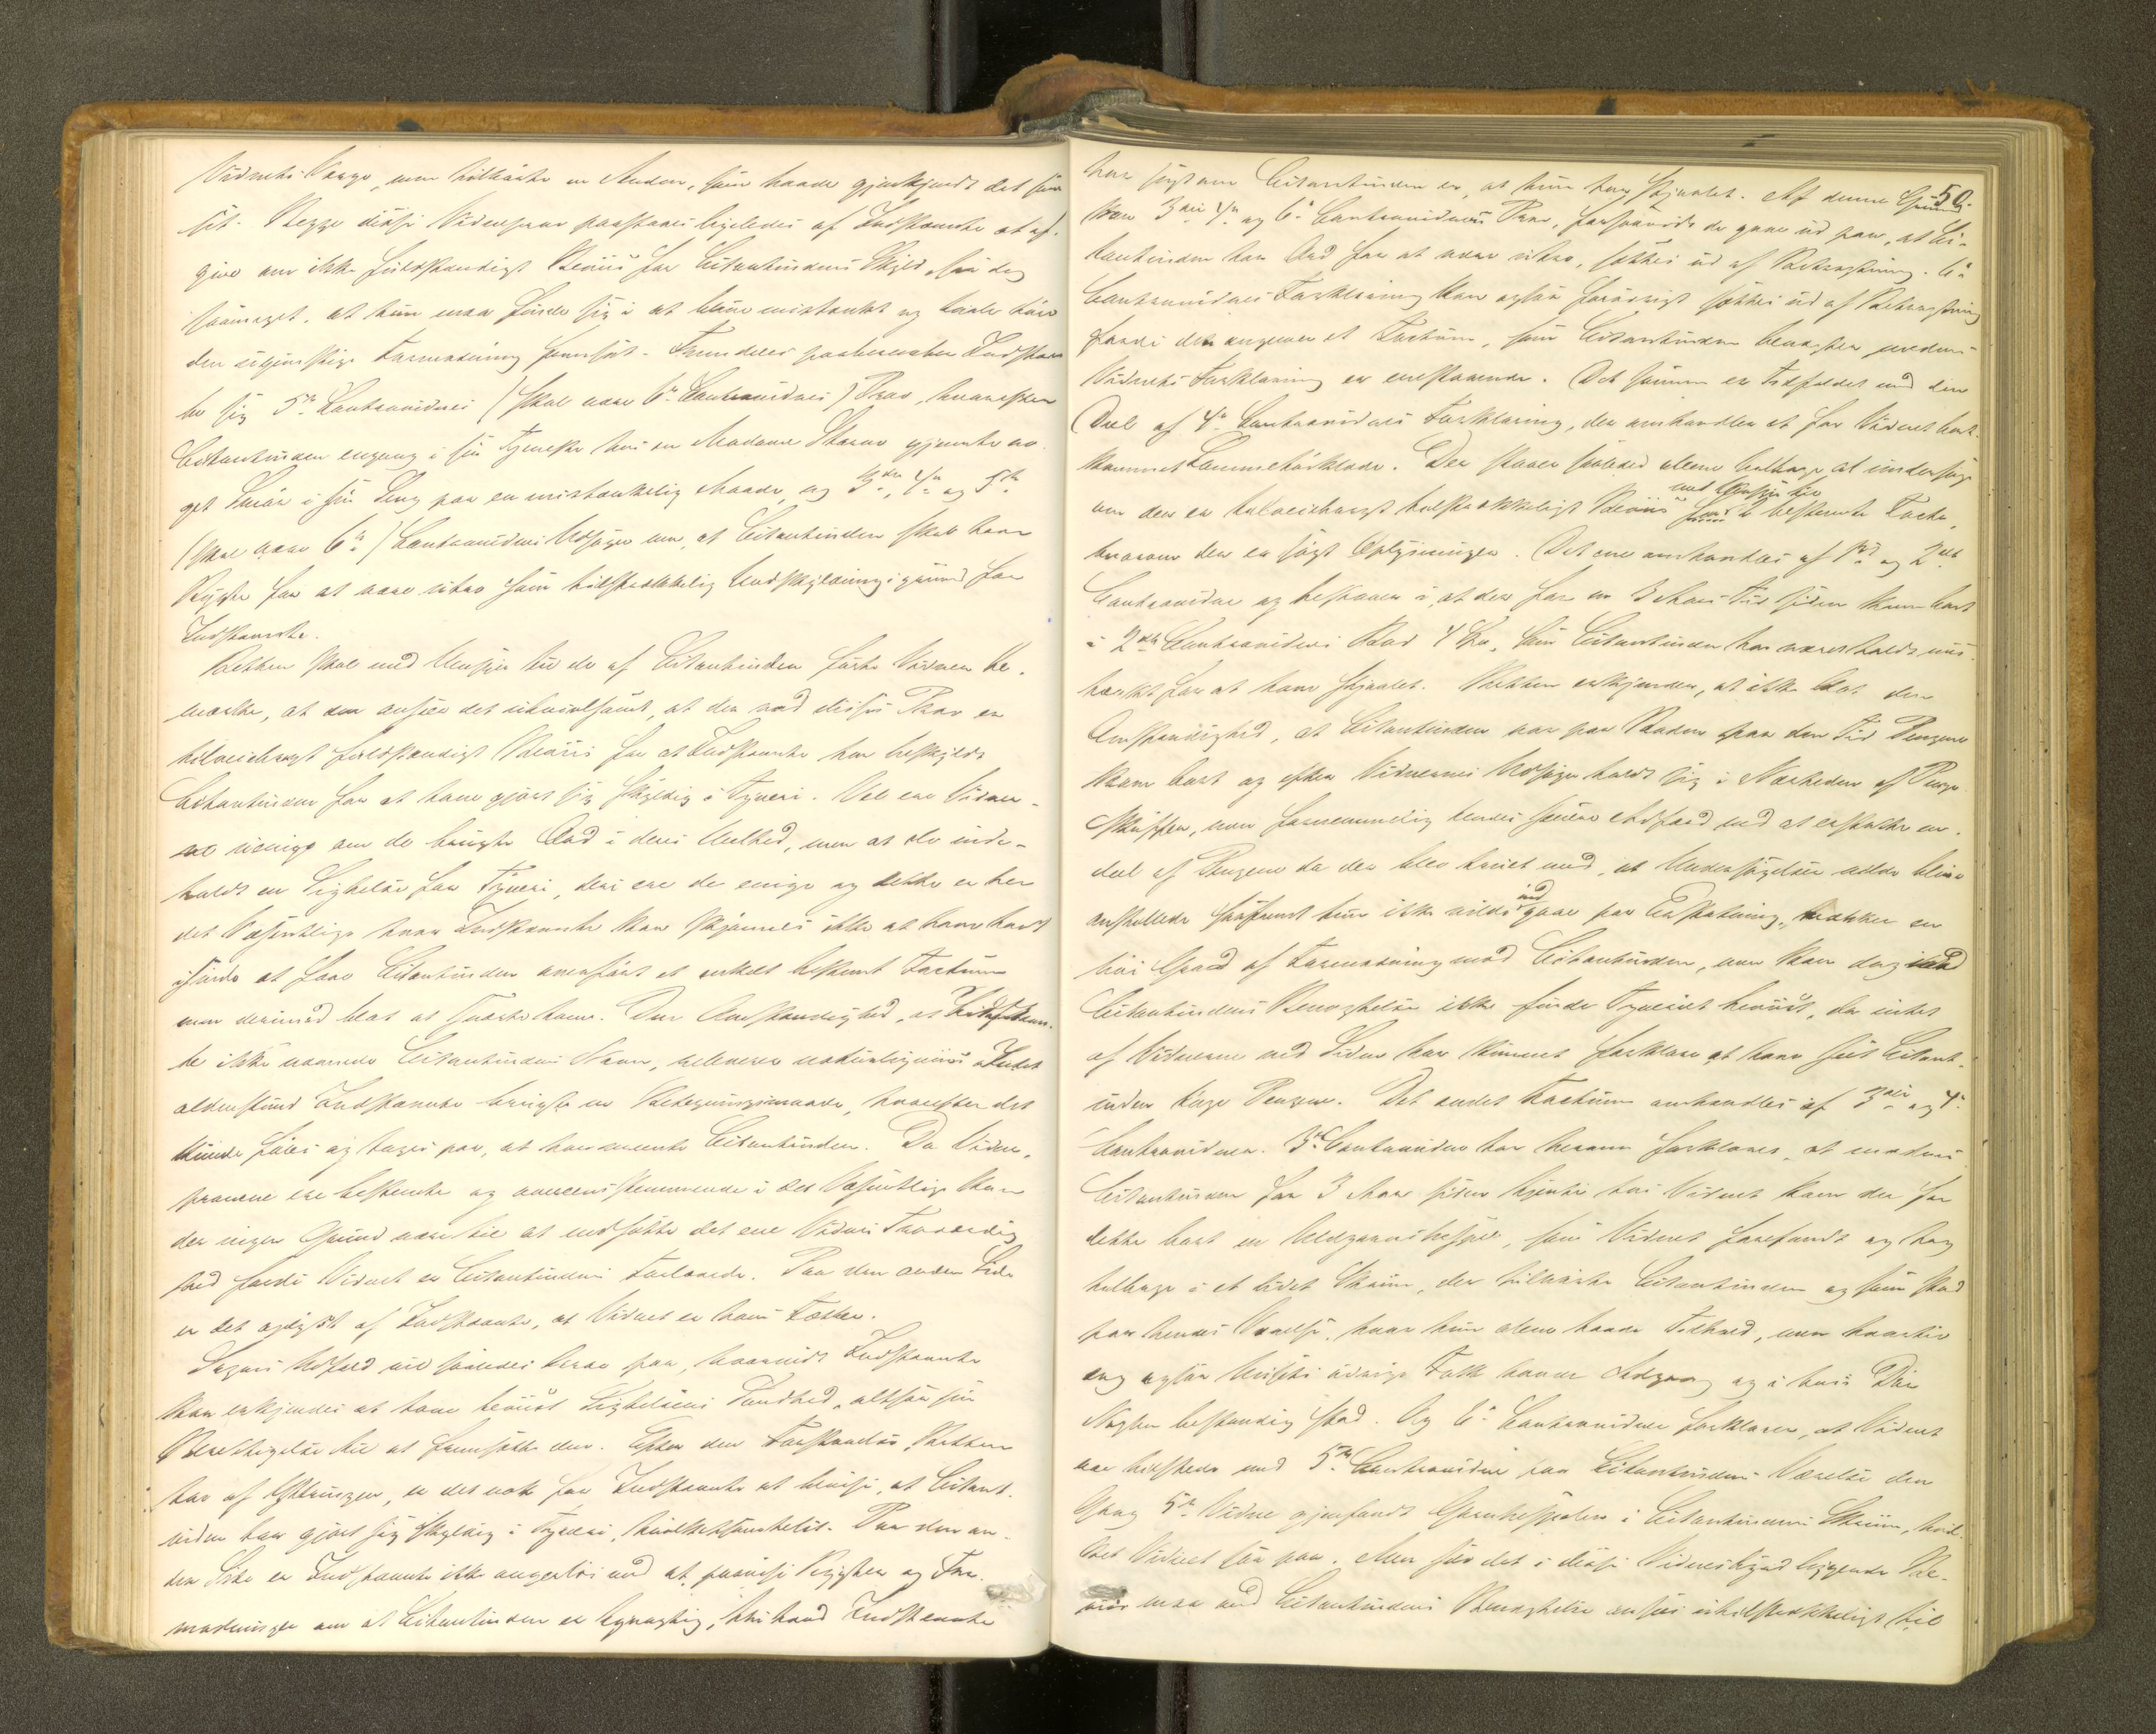 Vidnets Penge, men tilhørte en Anden, som havde gjenkjendt det for
sit. Begge disse Vidnesvar paastaaes ligeledes af Indstævnte at af-
give om ikke fuldstændigt Beviis for Citantindens Skyld, saa dog
saameget, at hun maa finde sig i at blive mistænkt og taale den
den ugunstige Formodning fremsat. Fremdeles paaberaaber Indstævn
te sig 5te Contravidnes (skal være 6te Contravidnes) Prov, hvorefter
Citantinden engang i sin Tjeneste hos en Madame gjemte no-
get Smør i sin Seng paa en mistænkelig Maade, og 3die, 4de og 5te
(skal være 6te) Contravidnes Udsagn om, at Citantinden skal have
Rygte for at være utro som tilstrækkelig Undskyldningsgrund for
Indstævnte.
Retten skal med Hensyn til de af Citantinden førte Vidner be-
mærke, at den anseer det utvivlsomt, at der ved disses Prov er
tilveiebragt fuldstændigt Beviis for at Indstævnte har beskyldt
Citantinden for at have gjort sig skyldig i Tyveri. Vel ere Vidner-
ne uenige om de brugte Ord i deres Heelhed, men at de inde-
holdt en Sigtelse for Tyveri, deri ere de enige og dette er her
det Væsentlige hvor Indstævnte kan skjønnes ikke at have havt
isinde at sære Citantinden anenført et enkelt bestemt Factum
men derimod blot at Den Omstændighed, at Indstævn-
te ikke nævnte Citantindens Navn, releverer naturligviis Intet
aldenstund Indstævnte brugte en Betegningsmaade, hvorefter det
kunde føles og tages paa, at han meente Citantinden. Da Vidne-
provene ere bestemte og overensstemmende i det Væsentlige kan
der ingen Grund være til at endsætte det ene Vidnes Troværdig
hed fordi Vidnet er Citantindens Forlovede. Paa den anden Side
er det oplyst af Indstævnte, at Vidnet er hans Fætter.
Sagens Udfald vil saaledes beroe paa, hvorvidt Indstævnte
kan erkjendes at have beviist Sigtelsens Sandhed, altsaa sin
Berettigelse til at fremsætte den. Efter den Forstaaelse, Retten
har af Yttringen, er det nok for Indstævnte at bevise, at Citant-
inden har gjort sig skyldig i Tyveri, hvilketsomhelst. Paa den an-
den Side er Indstævnte ikke angerløs ved at paavise Rygter og For-
modninger om at Citantinden er langfingret, thi hvad Indstævnte
50.
har sagt om Citantinden er, at hun har stjaalet. Af denne Grund
kan 3die 4de og 6te Contravidnes Prov, forsaavidt de gaae ud paa, at Ci-
tantinden har Ord for at være utro, sættes ud af Betragtning. 6te
Contravidnes Forklaring kan ogsaa forøvrigt sættes ud af Betragtning
fordi den angaaer et Factum, som Citantinden benægter medens
Vidnets Forklaring er enestaaende. Det samme er Tilfældet med den
Deel af 4de Contravidnes Forklaring, der omhandler et for Vidnet bort-
kommet Lommetørklæde. Der staaer saaledes alene tilbage at undersøge
om der er tilveiebragt tilstrækkeligt Beviis med Hensyn til 2 bestemte Facta,
hvorom der er søgt Oplysninger. Det ene omhandles af 1ste og 2det
Contravidne og bestaaer i, at der for en 3 Aars Tid siden kom bort
i 2det Contravidnes Bod 4 Kr., som Citantinden har været holdt mis-
tænkt for at have stjaalet. Retten erkjender, at ikke blot den
Omstændighed, at Citantinden var paa Boden paa den Tid Pengene
kom bort og efter Vidnernes Udsagn havde sig i Nærheden af Penge-
skuffen, men fornemmelig hendes senere Adfærd ved at erstatte en
deel af Pengene da der blev truet med, at Undersøgelse vilde blive
anstillet saafremt hun ikke vilde ind gaae paa Erstatning, vækker en
høi Grad af Formodning mod Citantinden, men kan dog mod
Citantindens Benægtelse ikke finde Tyveriet beviist, da intet
af Vidnerne ved Siden har kunnet forklare at have seet Citant-
inden tage Pengene. Det andet Factum omhandles af 3die og 4de
Contravidner. 3die Contravidne har herom forklaret, at medens
Citantinden for 3 Aar siden tjente hos Vidnet kom der for
dette bort en , som Vidnet forefandt og tog
tilbage i et lidet Skriin, der tilhørte Citantinden og som stod
paa hendes Værelse, hvor hun alene havde Tilhold, men hvortil
dog ogsaa Husets øvrige Folk havde Adgang og i hvis Dør
Nøglen bestandig stod. Og 6te Contravidne forklarer, at Vidnet
var tilstede med 5te Contravidne paa Citantindens Værelse den
Gang 5te Vidne gjenfandt i Citantindens Skriin, hvil-
ket Vidnet saa paa. Men for det i disse Vidnesbyrd liggende Be-
viis maa ved Citantindens Benægtelse ansees utilstrækkeligt til